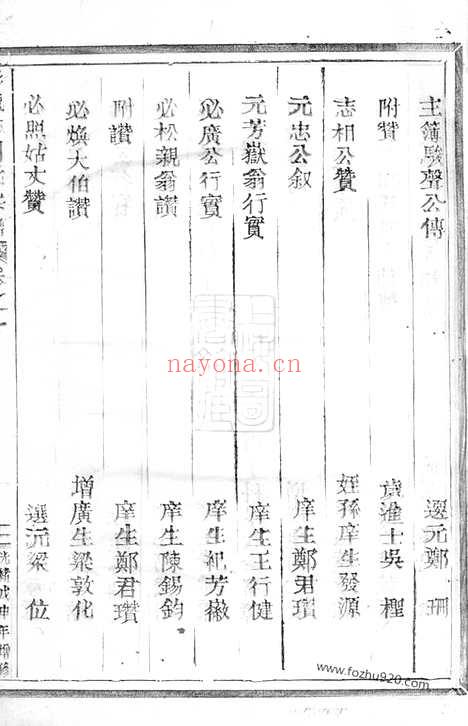 主簿駿聲公傳 選元鄭珊
附贊 歲進士吳桱
志相公贊 姪孫庠生發源
元忠公叙 庠生鄭君瓚
元芳嶽翁行實 庠生王行健
必廣公行實 庠生祀芳徽
必松親翁讚 庠生陳錫鈞
附讚 庠生鄭君瓚
必煥大伯讚 增廣生梁敦化
必照姑丈贊 選元梁位
光緒戊申年增修
nayona.cn
www.fozhu920.com